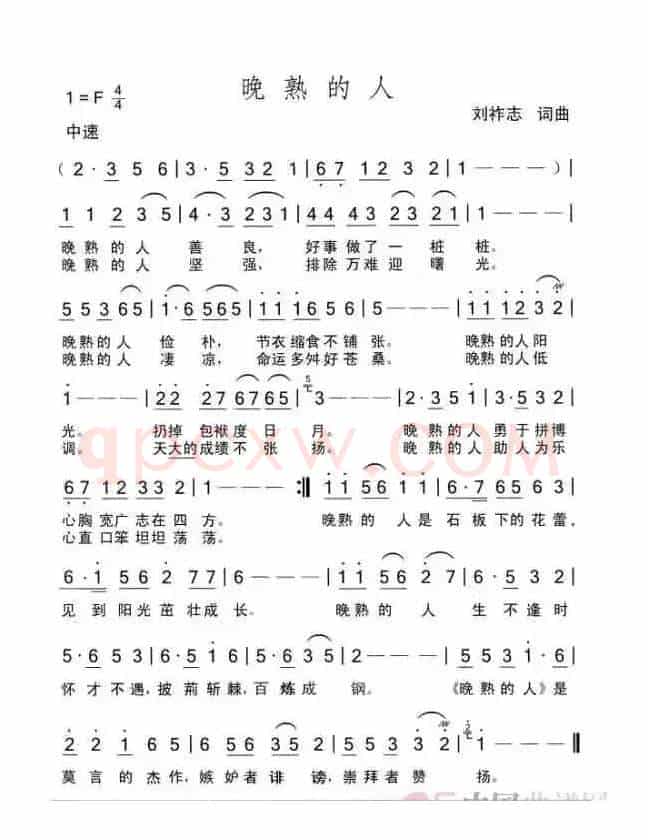 晚熟的人
1=F 4/4
刘祚志 词曲
中速
(2·3 5 6|3·5 3 2 1|6 7 1 2 3 2|1———)|
1 1 2 3 5|4·3 2 3 1|4 4 4 3 2 3 2|1———|
晚熟的人 善 良, 好事做了一桩桩。
晚熟的人 坚 强, 排除万难迎曙光。
5 5 3 6 5|1·6 5 6 5|1 1 1 6 5 6|5———|1 1 1 2 3 2|
晚熟的人 俭 朴, 节衣缩食不铺张。 晚熟的人阳
晚熟的人 凄 凉, 命运多舛好苍桑。 晚熟的人低
1———|2 2 2 7 6 7 6 5|3———|2·3 5 1|3·5 3 2|
光。 扔掉 包袱度日 月。 晚熟的人 勇于拼博
调。 天大的成绩不张 扬。 晚熟的人 助人为乐
6 7 1 2 3 3 2|1———:‖1 1 5 6 1 1|6·7 5 6 5|
心胸宽广志在四方。 晚熟的 人是石板下的花蕾,
心直口笨坦坦荡荡。
6·1 5 6 2 7 7|6———|1 1 5 6 2 7|6·2 7 6|
见 到 阳光茁壮成长。 晚熟的 人 生不逢时
5·6 5 3|6·5 6 3|1·6 5 6|2———|5·3 5 6|
怀才不遇,披荆斩棘,百炼成 钢。 《晚熟的人》是
2 2 1 6 5|6 2 7 6|5·3 5 5 3 2|1———‖
莫言的杰作,嫉妒者诽 谤,崇拜者赞 扬。
qpcxw.com